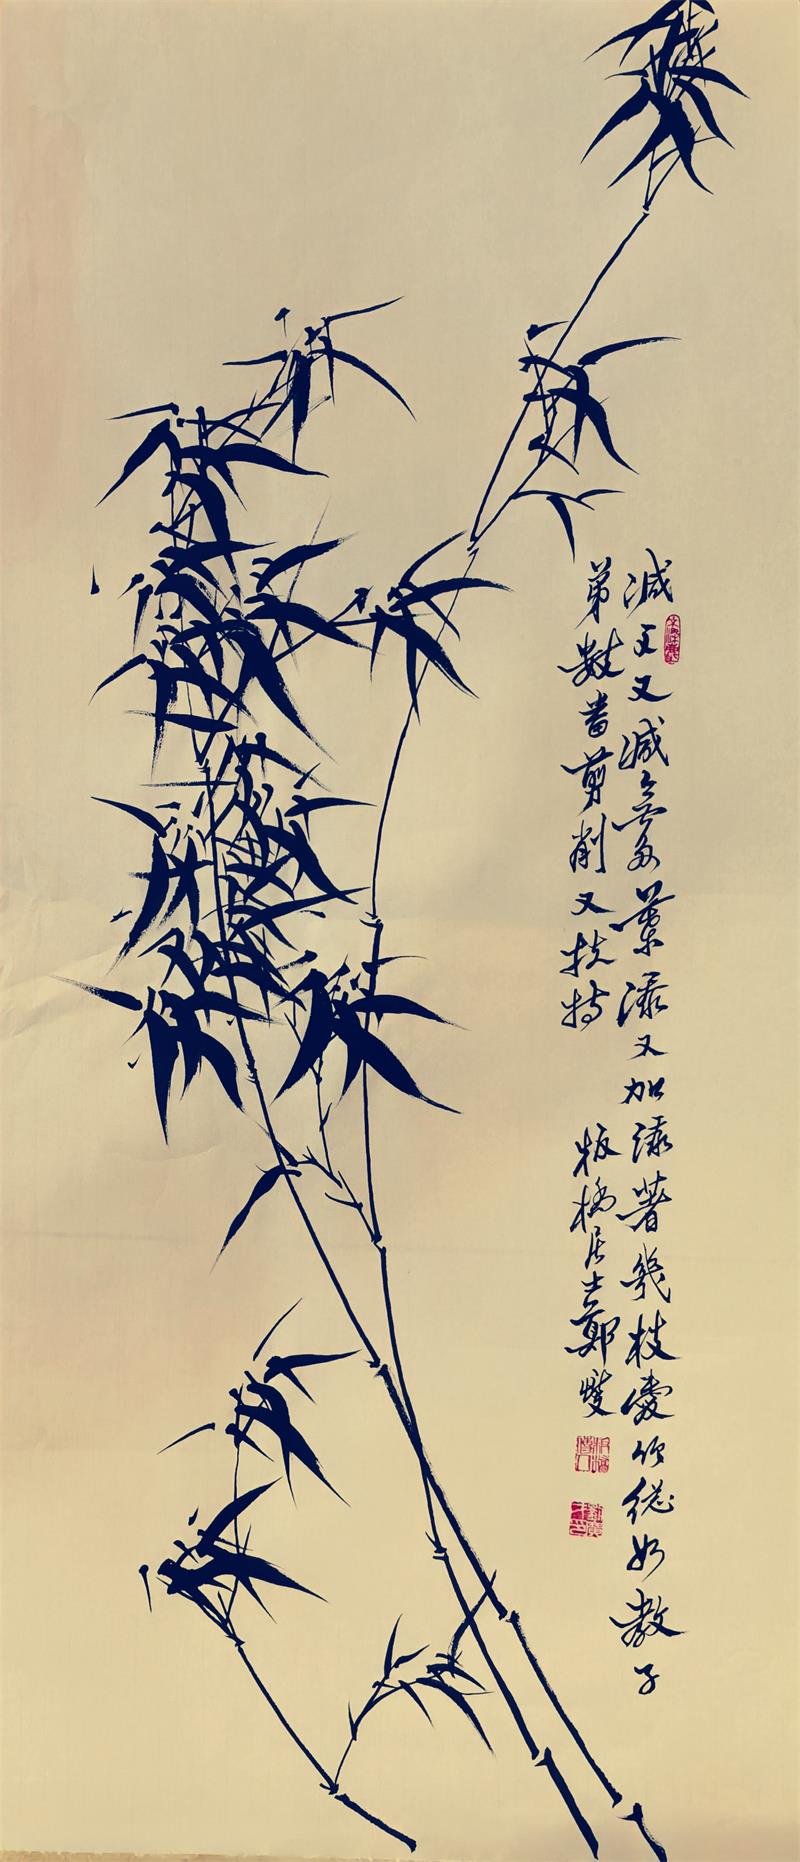 減之又減無多葉添又加添著幾枝愛竹總如教子
弟數番剪削又扶持 板橋居士鄭燮